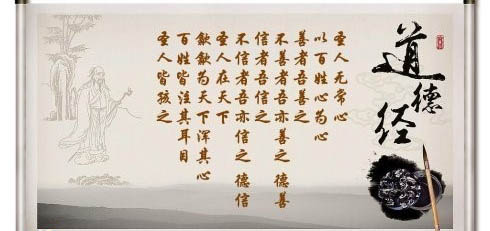 道德经
圣人无常心
以百姓心为心
善者吾善之
不善者吾亦善之 德善
信者吾信之
不信者吾亦信之 德信
圣人在天下
歙歙为天下浑其心
百姓皆注其耳目
圣人皆孩之